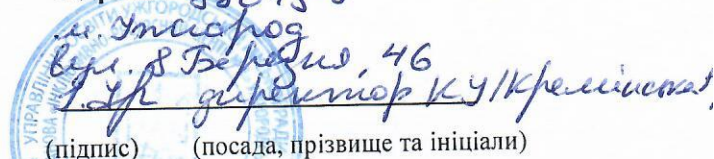 м. Ужгород
вул. 8 Березня, 46
директор КУ /Кремінська/
(підпис) (посада, прізвище та ініціали)